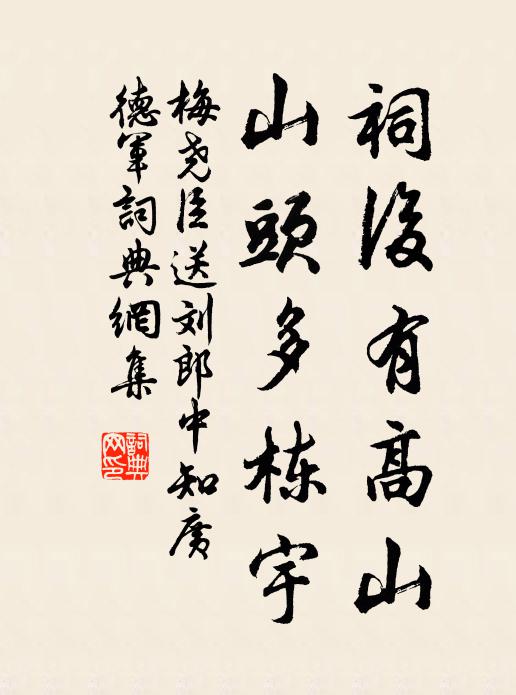 祠後有高山
山頭多栋宇
梅尧臣送刘郎中知廣
德軍詞典網集
詞典網印